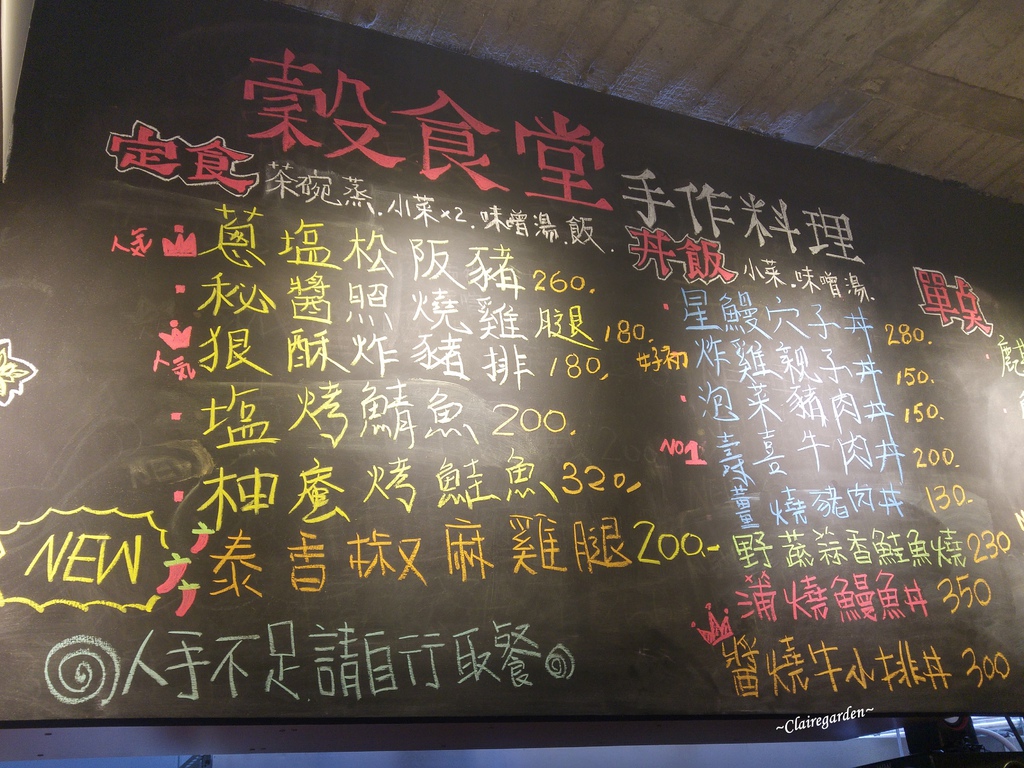 穀食堂
手作料理
定食
茶碗蒸.小菜x2.味噌湯.飯
人気
蔥塩松阪豬260.
秘醬照燒雞腿180.
人氣
狠酥炸豬排180.
塩烤鯖魚200.
柚庵烤鮭魚320.
NEW
泰香椒麻雞腿200.-
人手不足請自行取餐
丼飯
小菜.味噌湯.
星鰻穴子丼280.
炸雞親子丼150.
泡菜豬肉丼150.
NO1
壽喜牛肉丼200.
薑燒豬肉丼130.
野蔬蒜香鮭魚燒230
蒲燒鰻魚丼350
醬燒牛小排丼300
單点
~Clairegarden~